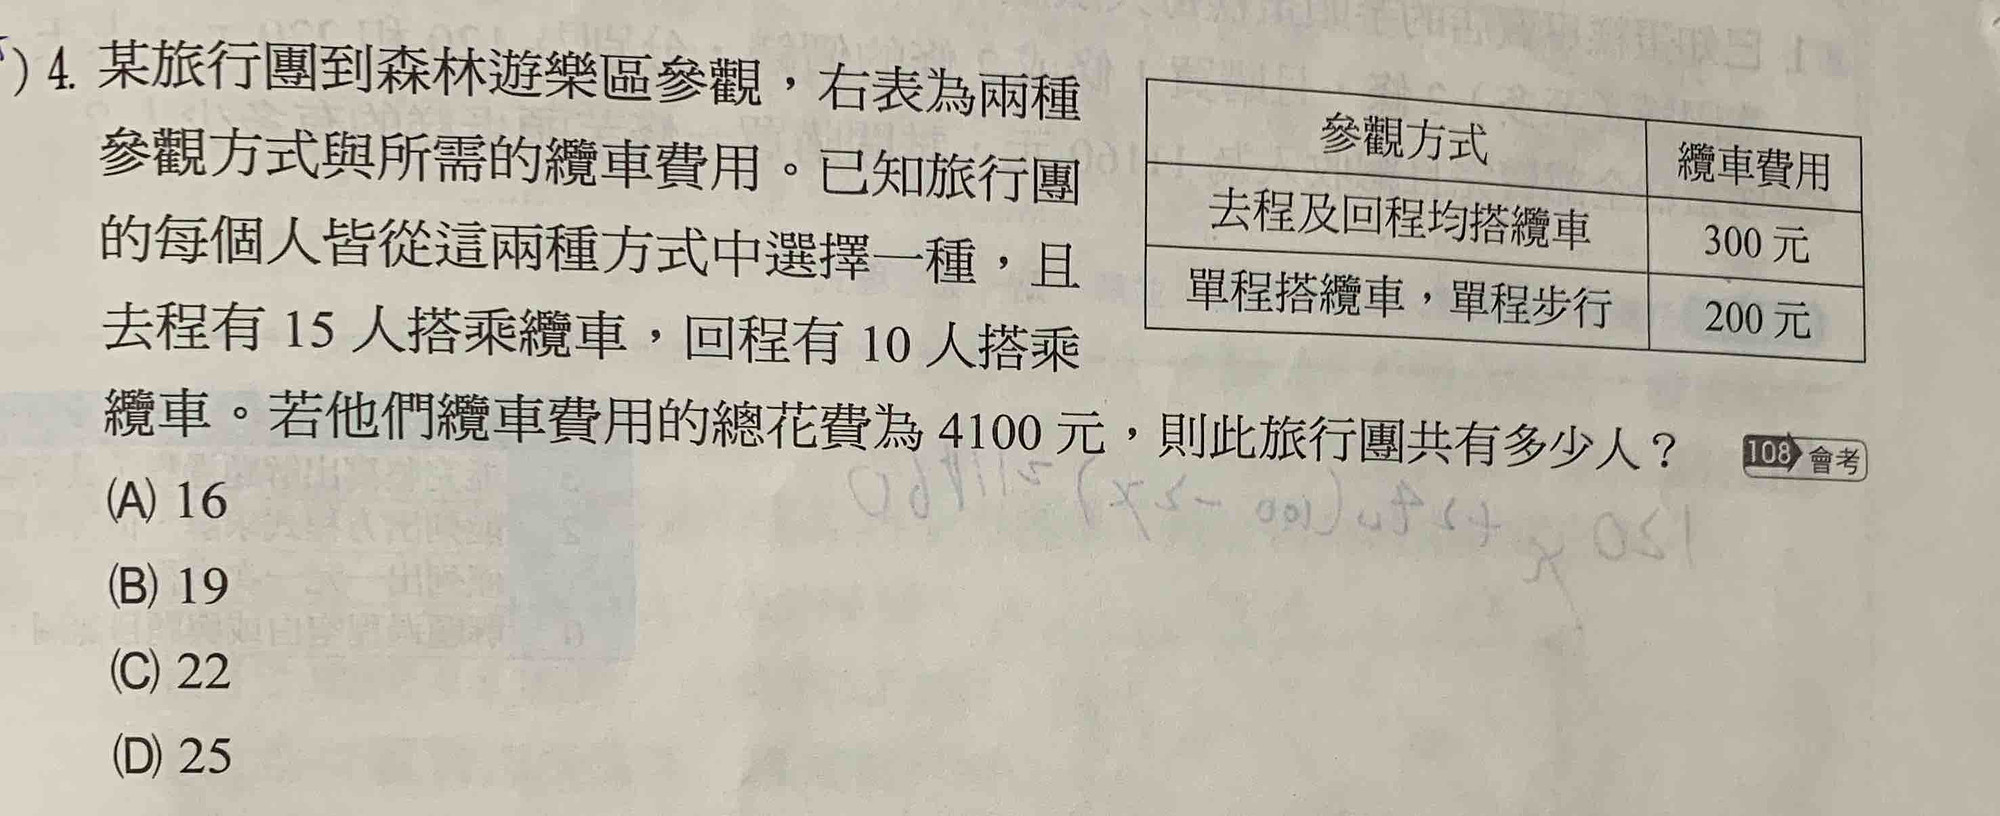 ) 4. 某旅行團到森林遊樂區參觀，右表為兩種
參觀方式與所需的纜車費用。已知旅行團
的每個人皆從這兩種方式中選擇一種，且
去程有 15 人搭乘纜車，回程有 10 人搭乘
纜車。若他們纜車費用的總花費為 4100 元，則此旅行團共有多少人？
108 會考
(A) 16
(B) 19
(C) 22
(D) 25
參觀方式 纜車費用
去程及回程均搭纜車 300 元
單程搭纜車，單程步行 200 元